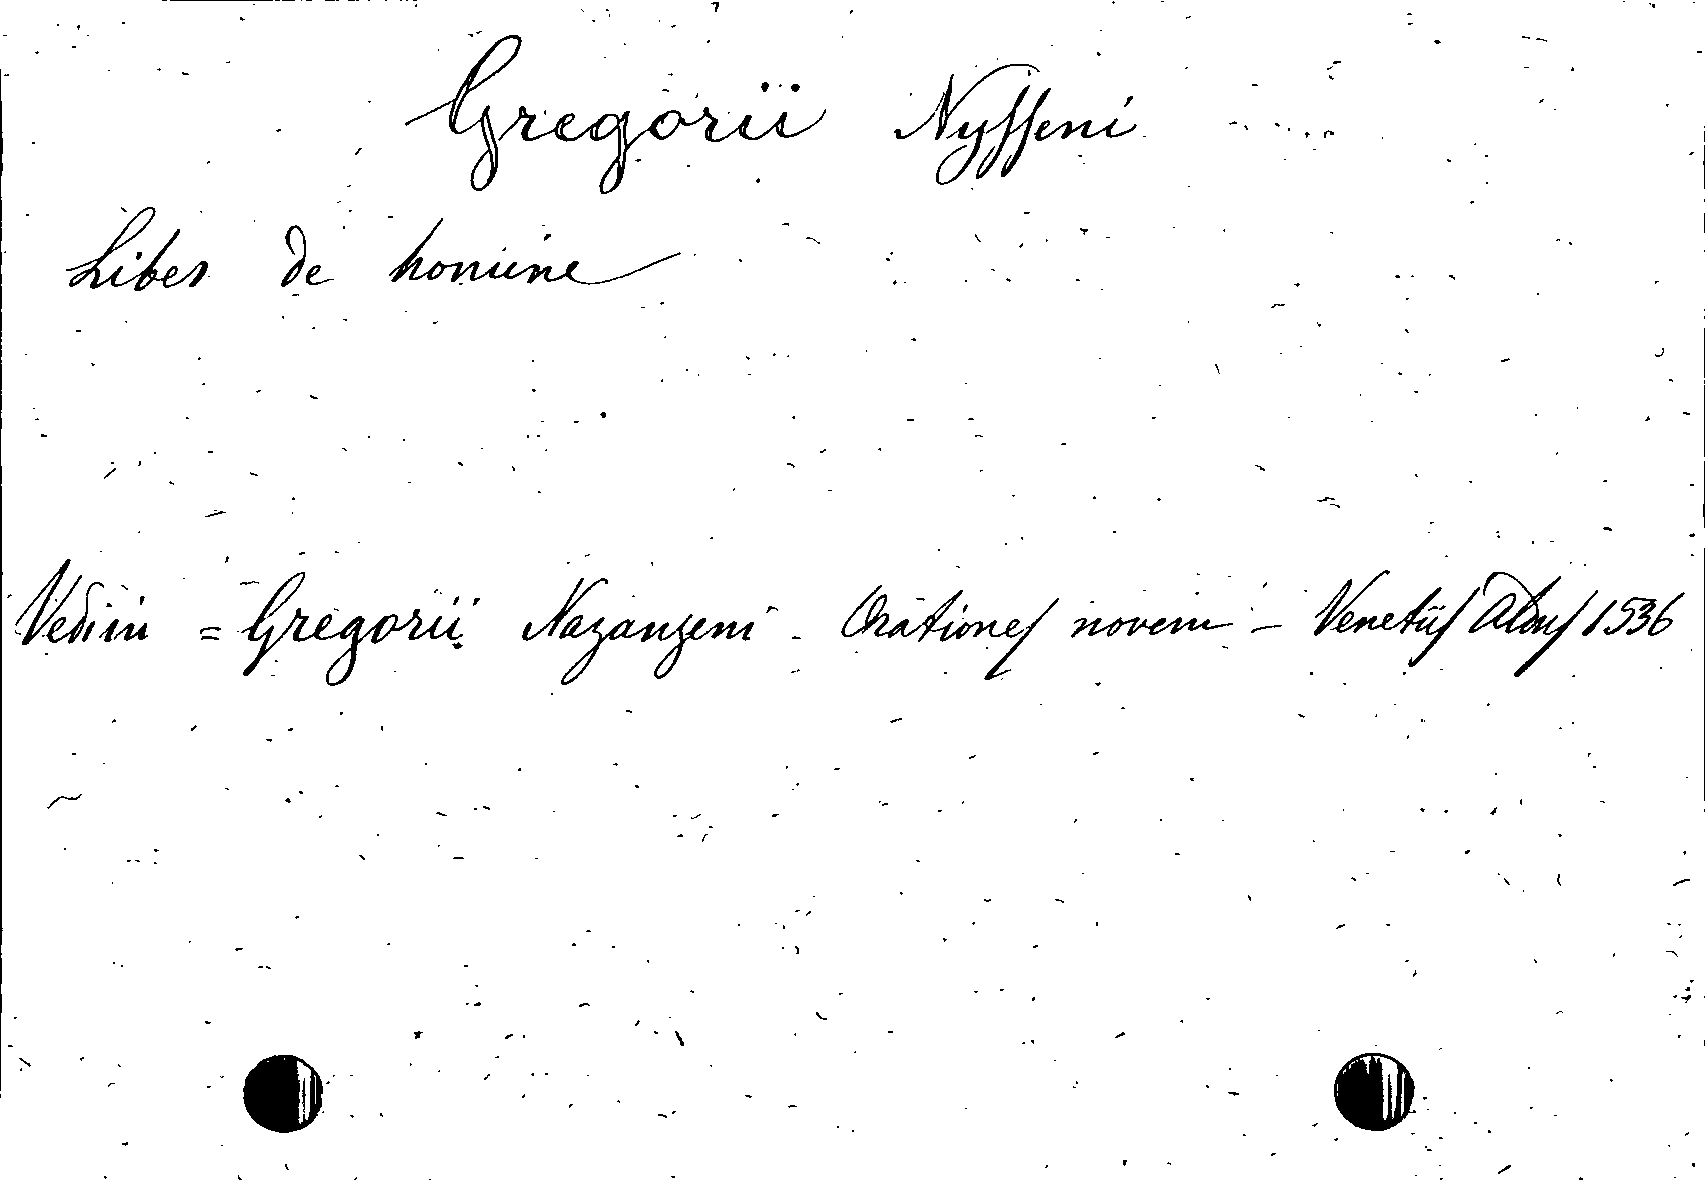 Gregorii Nysseni
Liber de homine
Vedi in = Gregorii Nazanzeni - Orationes novem - Venetiis Aldus 1536